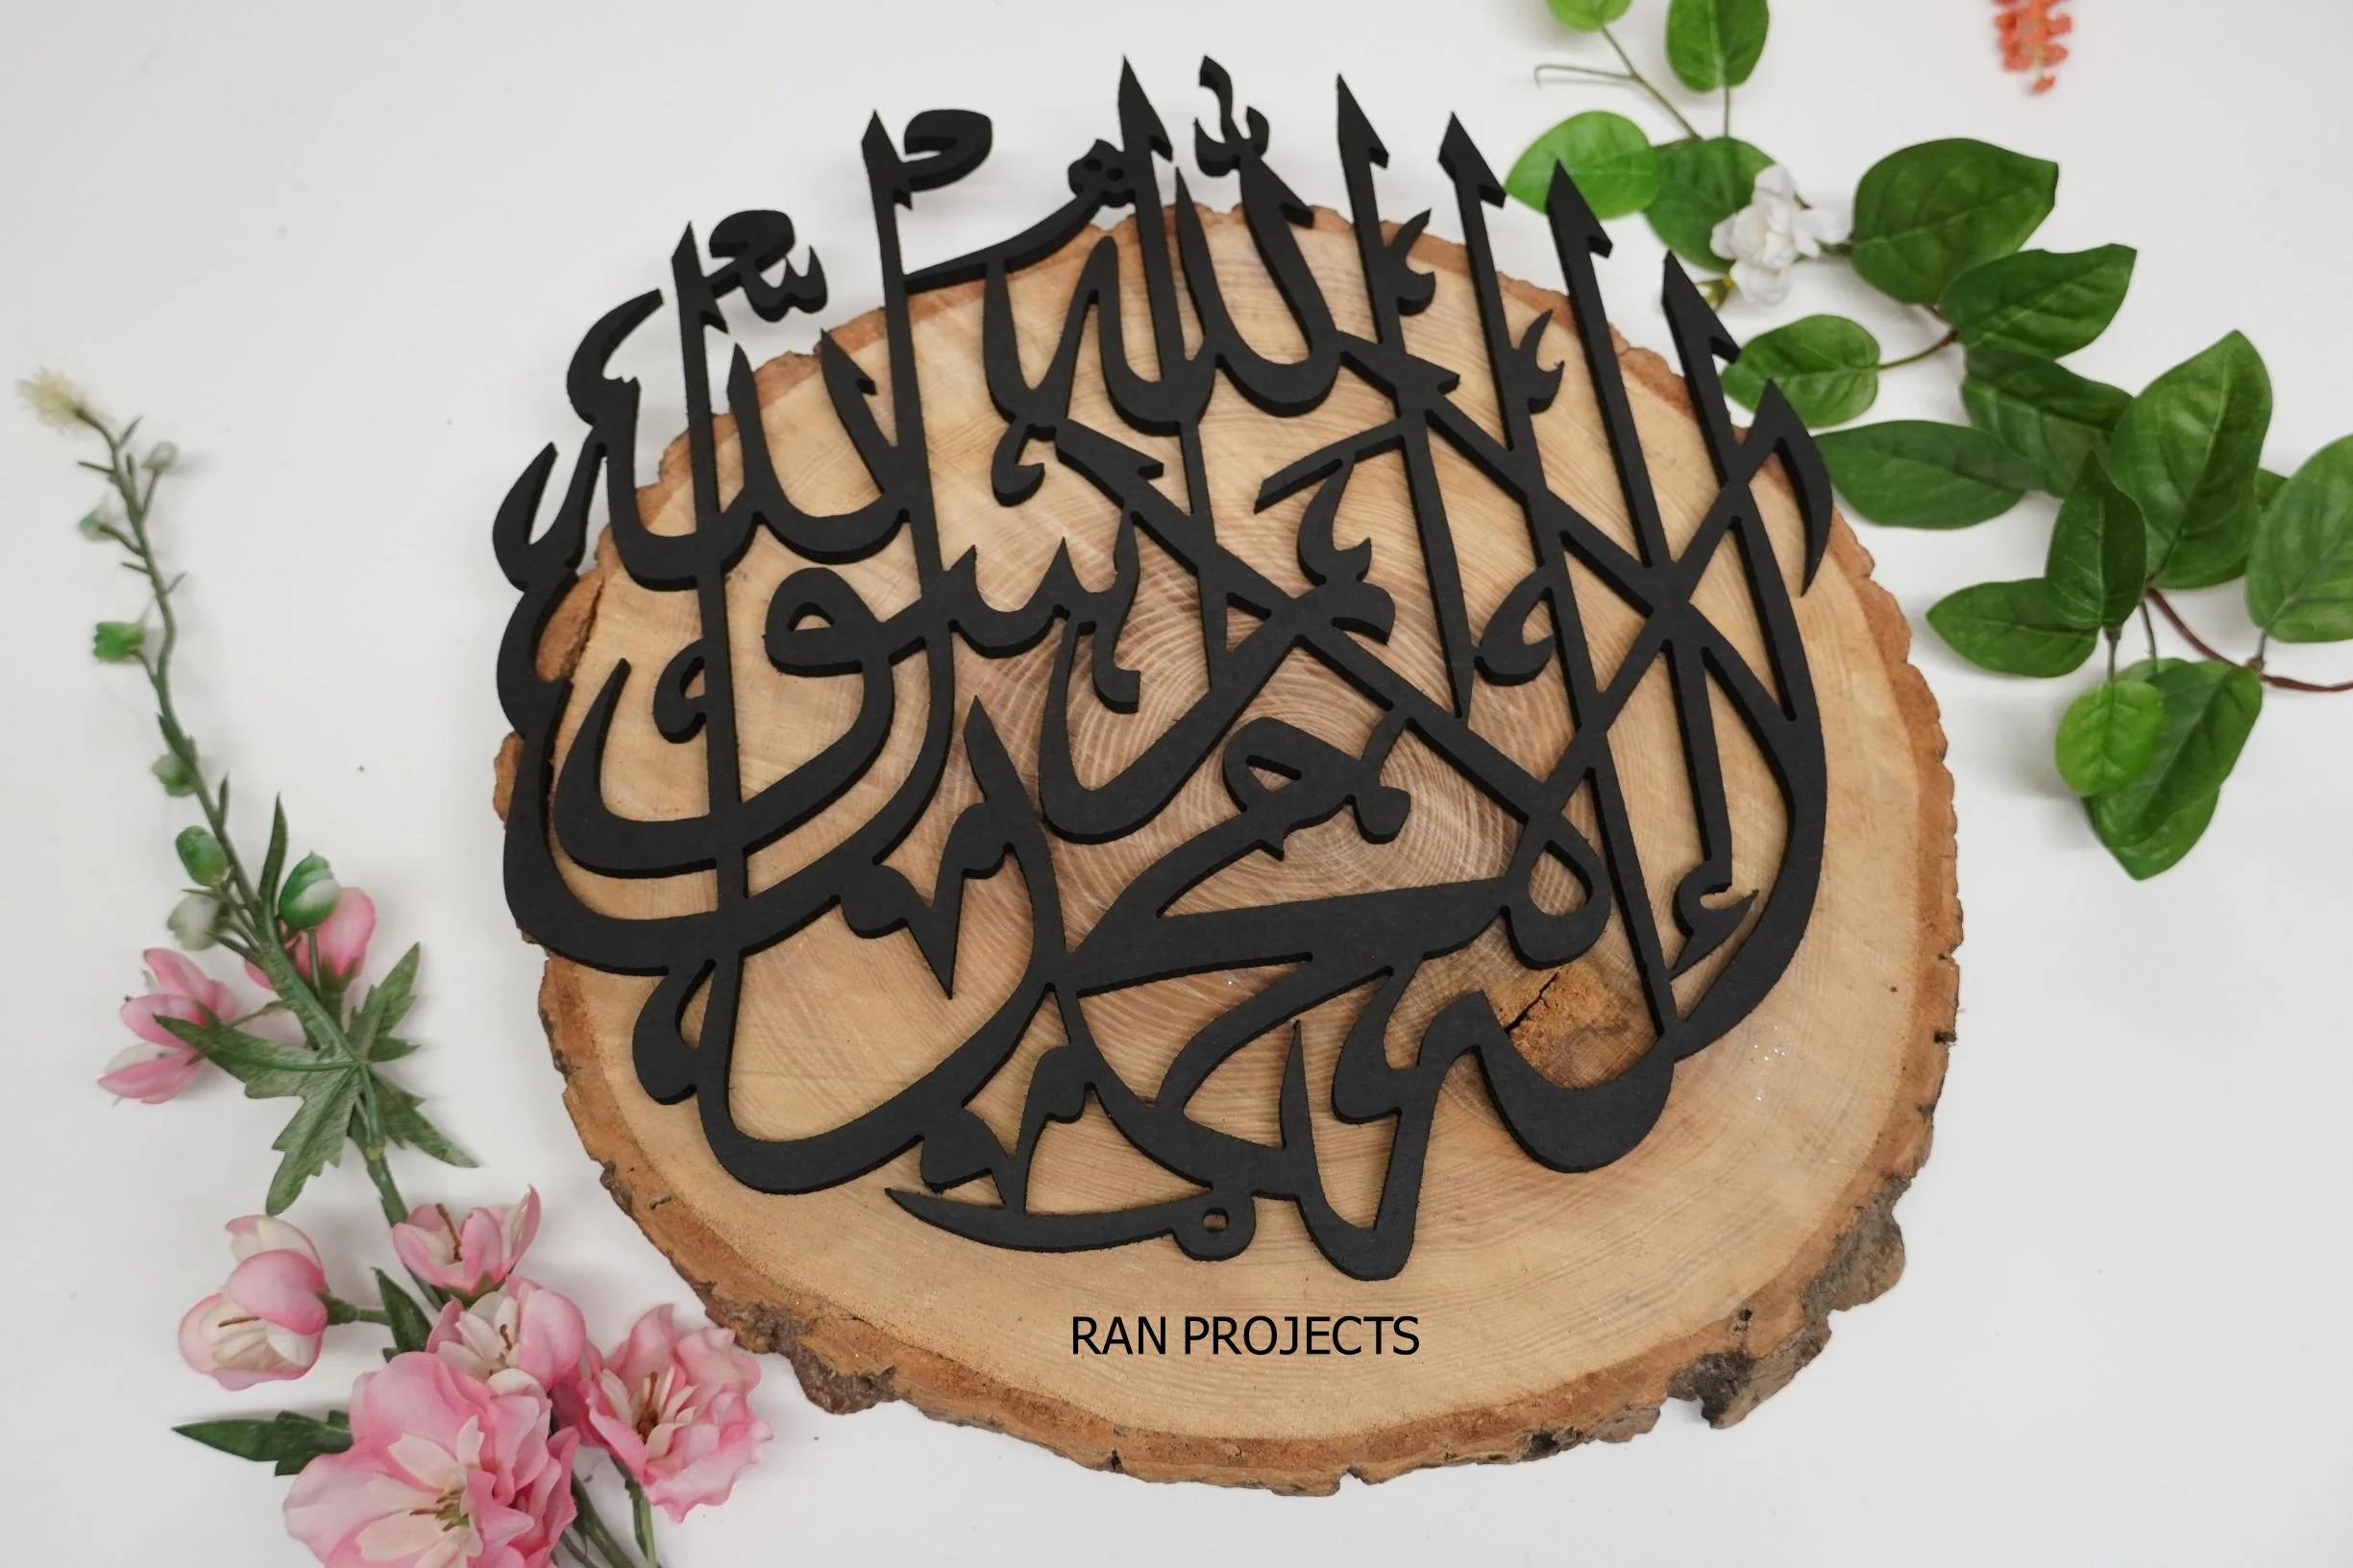 لا إله إلا الله محمد رسول الله
RAN PROJECTS